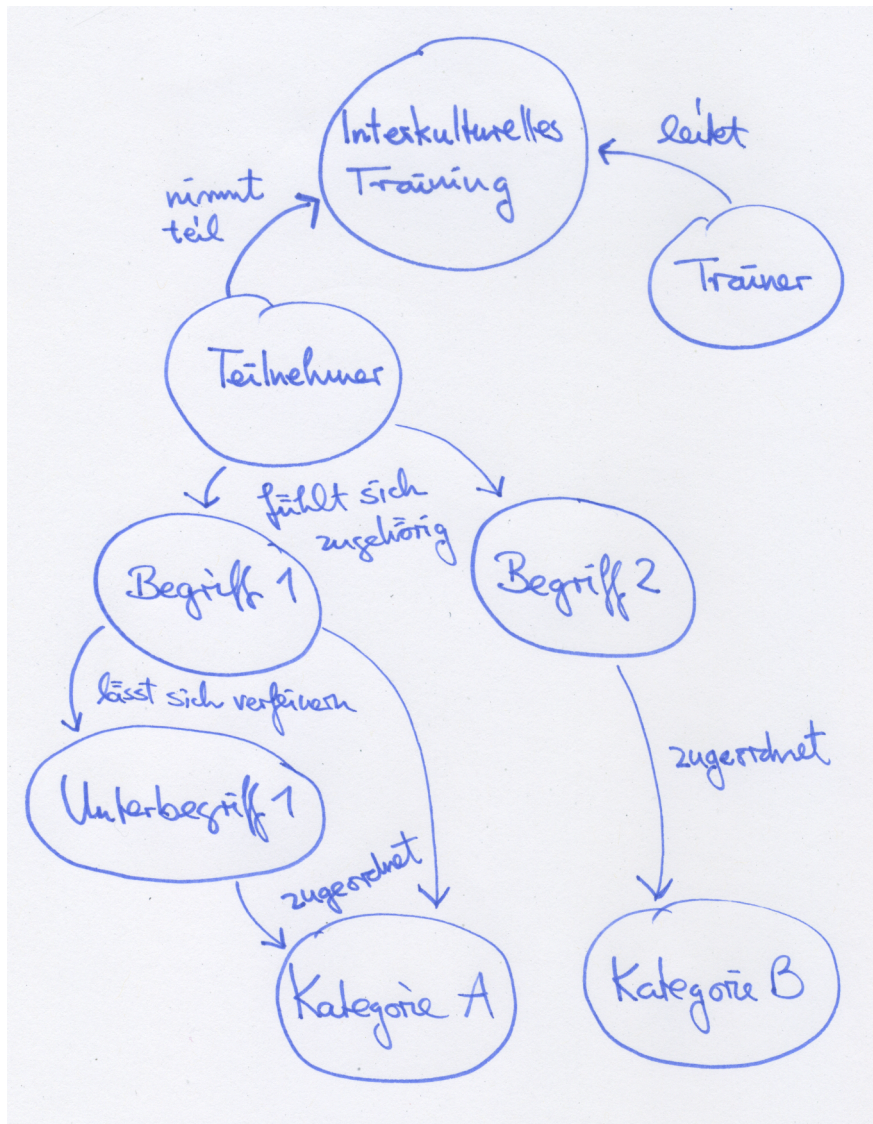 Interkulturelles
Training
leitet
nimmt
teil
Trainer
Teilnehmer
fühlt sich
zugehörig
Begriff 1
Begriff 2
lässt sich verfeinern
zugeordnet
Unterbegriff 1
zugeordnet
Kategorie A
Kategorie B